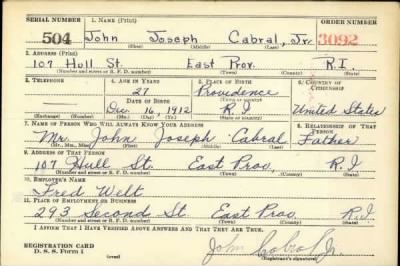 SERIAL NUMBER 1. NAME (Print) ORDER NUMBER
504 John Joseph Cabral, Jr. 3092
(First) (Middle) (Last)
2. ADDRESS (Print)
107 Hull St. East Prov. R.I.
(Number and street or R. F. D. number) (Town) (County) (State)
3. TELEPHONE 4. AGE IN YEARS 5. PLACE OF BIRTH 6. COUNTRY OF CITIZENSHIP
27 Providence
DATE OF BIRTH (Town or county)
Dec. 16, 1912 R.I. United States
(Exchange) (Number) (Mo.) (Day) (Yr.) (State or country)
7. NAME OF PERSON WHO WILL ALWAYS KNOW YOUR ADDRESS 8. RELATIONSHIP OF THAT PERSON
Mr. John Joseph Cabral Father
(Mr., Mrs., Miss) (First) (Middle) (Last)
9. ADDRESS OF THAT PERSON
107 Hull St. East Prov. R.I
(Number and street or R. F. D. number) (Town) (County) (State)
10. EMPLOYER'S NAME
Fred Welt
11. PLACE OF EMPLOYMENT OR BUSINESS
293 Second St. East Prov. R.I.
(Number and street or R. F. D. number) (Town) (County) (State)
I AFFIRM THAT I HAVE VERIFIED ABOVE ANSWERS AND THAT THEY ARE TRUE.
REGISTRATION CARD
D. S. S. Form 1 (over) John Cabral Jr.
(Registrant's signature)